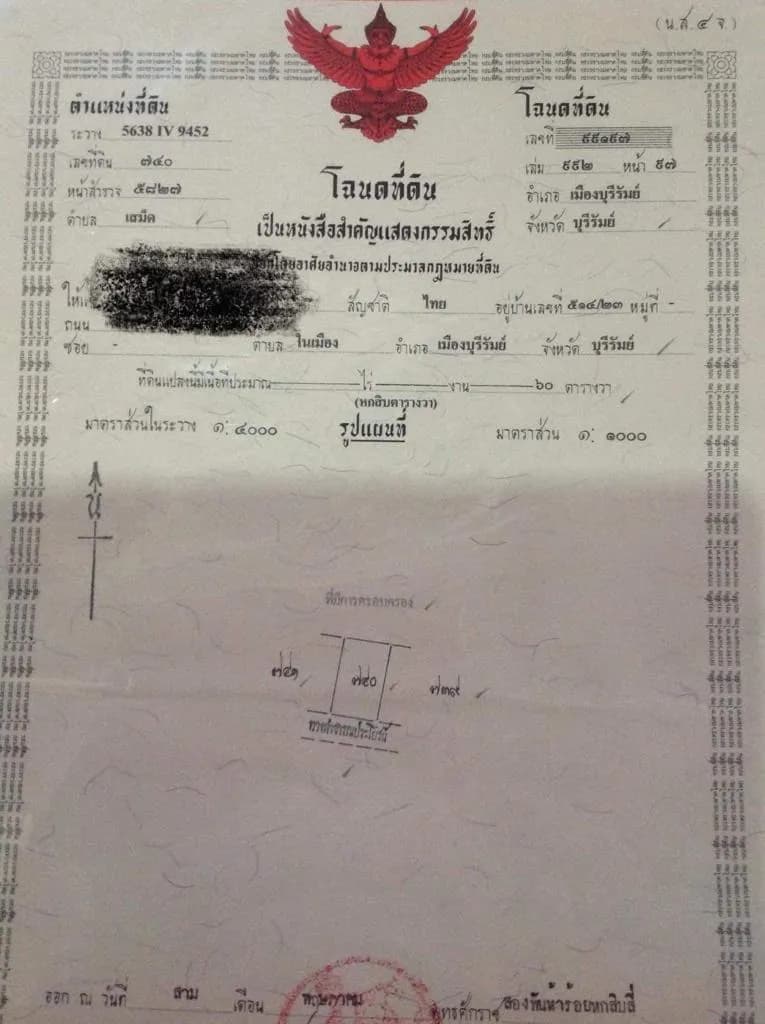 (น.ส.๔ จ.)
ตำแหน่งที่ดิน
ระวาง 5638 IV 9452
เลขที่ดิน ๗๔๐
หน้าสำรวจ ๕๘๒๗
ตำบล เสม็ด
โฉนดที่ดิน
เลขที่ ๙๙๑๙๗
เล่ม ๙๙๒ หน้า ๙๗
อำเภอ เมืองบุรีรัมย์
จังหวัด บุรีรัมย์
โฉนดที่ดิน
เป็นหนังสือสำคัญแสดงกรรมสิทธิ์
โดยอาศัยอำนาจตามประมวลกฎหมายที่ดิน
สัญชาติ ไทย อยู่บ้านเลขที่ ๕๑๔/๒๓ หมู่ที่ -
ถนน
ซอย - ตำบล ในเมือง อำเภอ เมืองบุรีรัมย์ จังหวัด บุรีรัมย์
ที่ดินแปลงนี้มีเนื้อที่ประมาณ - ไร่ - งาน - ๖๐ ตารางวา
(หกสิบตารางวา)
มาตราส่วนในระวาง ๑: ๔๐๐๐ รูปแผนที่ มาตราส่วน ๑: ๑๐๐๐
น
ที่มีการครอบครอง
๗๔๑ ๗๔๐ ๗๓๙
ทางสาธารณประโยชน์
ออก ณ วันที่ สาม เดือน พฤษภาคม พุทธศักราช สองพันห้าร้อยหกสิบสี่